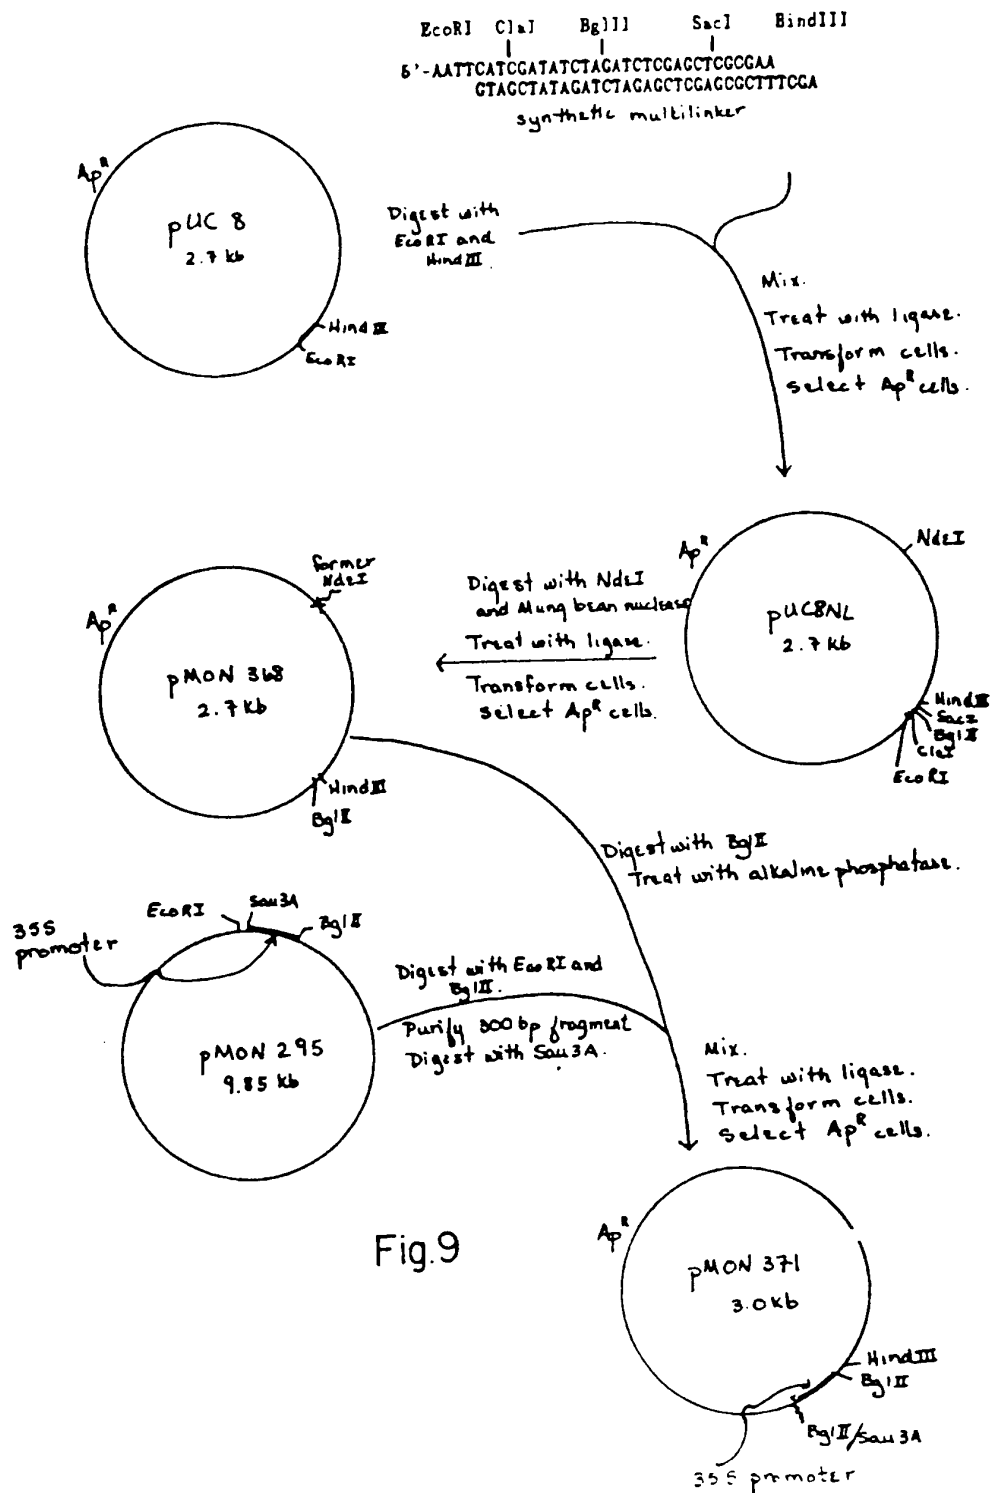 EcoRI ClaI BglII SacI BindIII
5'-AATTCATCGATATCTAGATCTCGAGCTCGCGAA
GTAGCTATAGATCTAGAGCTCGAGCGCTTTCGA
synthetic multilinker
Ap^R
pUC 8
2.7 kb
Hind III
EcoRI
Digest with
EcoRI and
Hind III.
Mix.
Treat with ligase.
Transform cells.
Select Ap^R cells.
Ap^R
NdeI
pUC8NL
2.7 kb
Hind III
SacI
Bgl II
ClaI
EcoRI
Digest with NdeI
and Mung bean nuclease
Treat with ligase.
Transform cells.
Select Ap^R cells.
former
NdeI
Ap^R
pMON 368
2.7 kb
Hind III
Bgl II
Digest with Bgl II
Treat with alkaline phosphatase.
35S
promoter
EcoRI
Sau3A
Bgl II
pMON 295
9.85 kb
Digest with EcoRI and
Bgl II.
Purify 300 bp fragment
Digest with Sau3A.
Mix.
Treat with ligase.
Transform cells.
Select Ap^R cells.
Fig.9
Ap^R
pMON 371
3.0 kb
Hind III
Bgl II
Bgl II/Sau3A
35S promoter